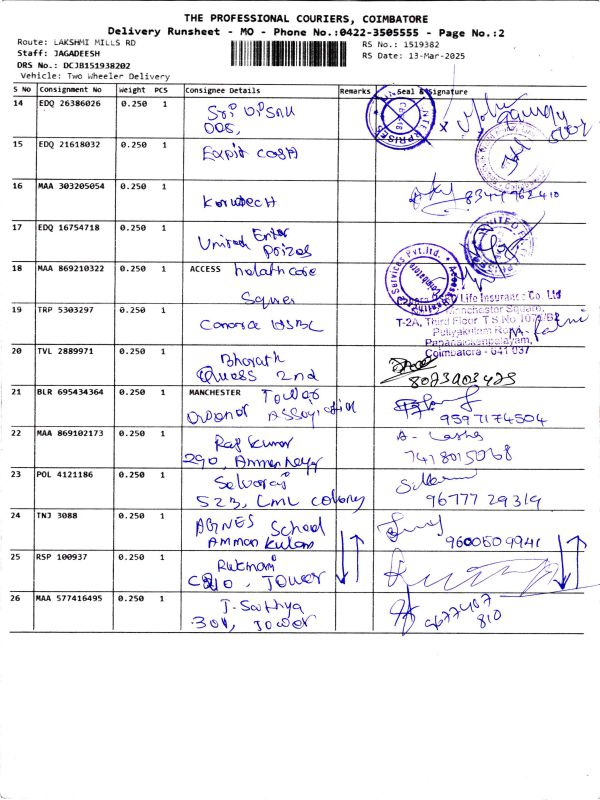 THE PROFESSIONAL COURIERS, COIMBATORE
Delivery Runsheet - MO - Phone No.:0422-3505555 - Page No.:2
Route: LAKSHMI MILLS RD
Staff: JAGADEESH
DRS No.: DCJB151938202
Vehicle: Two Wheeler Delivery
RS No.: 1519382
RS Date: 13-Mar-2025
S No Consignment No Weight PCS Consignee Details Remarks Seal & Signature
14 EDQ 26386026 0.250 1 Sri
15 EDQ 21618032 0.250 1
16 MAA 303205054 0.250 1 8344962410
17 EDQ 16754718 0.250 1 United Enter
Prizes
18 MAA 869210322 0.250 1 ACCESS helathcare
Services Pvt.ltd.
19 TRP 5303297 0.250 1 Canara HSBC
Life Insurance Co. Ltd
Manchester Square,
T-2A, Third Floor T.S No 1074/B2
Puliyakulam Road
Papanaickenpalayam,
Coimbatore - 641 037
20 TVL 2889971 0.250 1 Bharath
Quess 2nd
21 BLR 695434364 0.250 1 MANCHESTER Tower
Owener Association
9597174504
22 MAA 869102173 0.250 1 Raj Kumar
290, Amman Nagar
7418015068
23 POL 4121186 0.250 1 Selvaraj
523, LML colony
96777 29319
24 TNJ 3088 0.250 1 AGNES School
Amman Kulam
9600509941
25 RSP 100937 0.250 1 Rukmani
Tower
26 MAA 577416495 0.250 1 J. Sathya
301, Tower